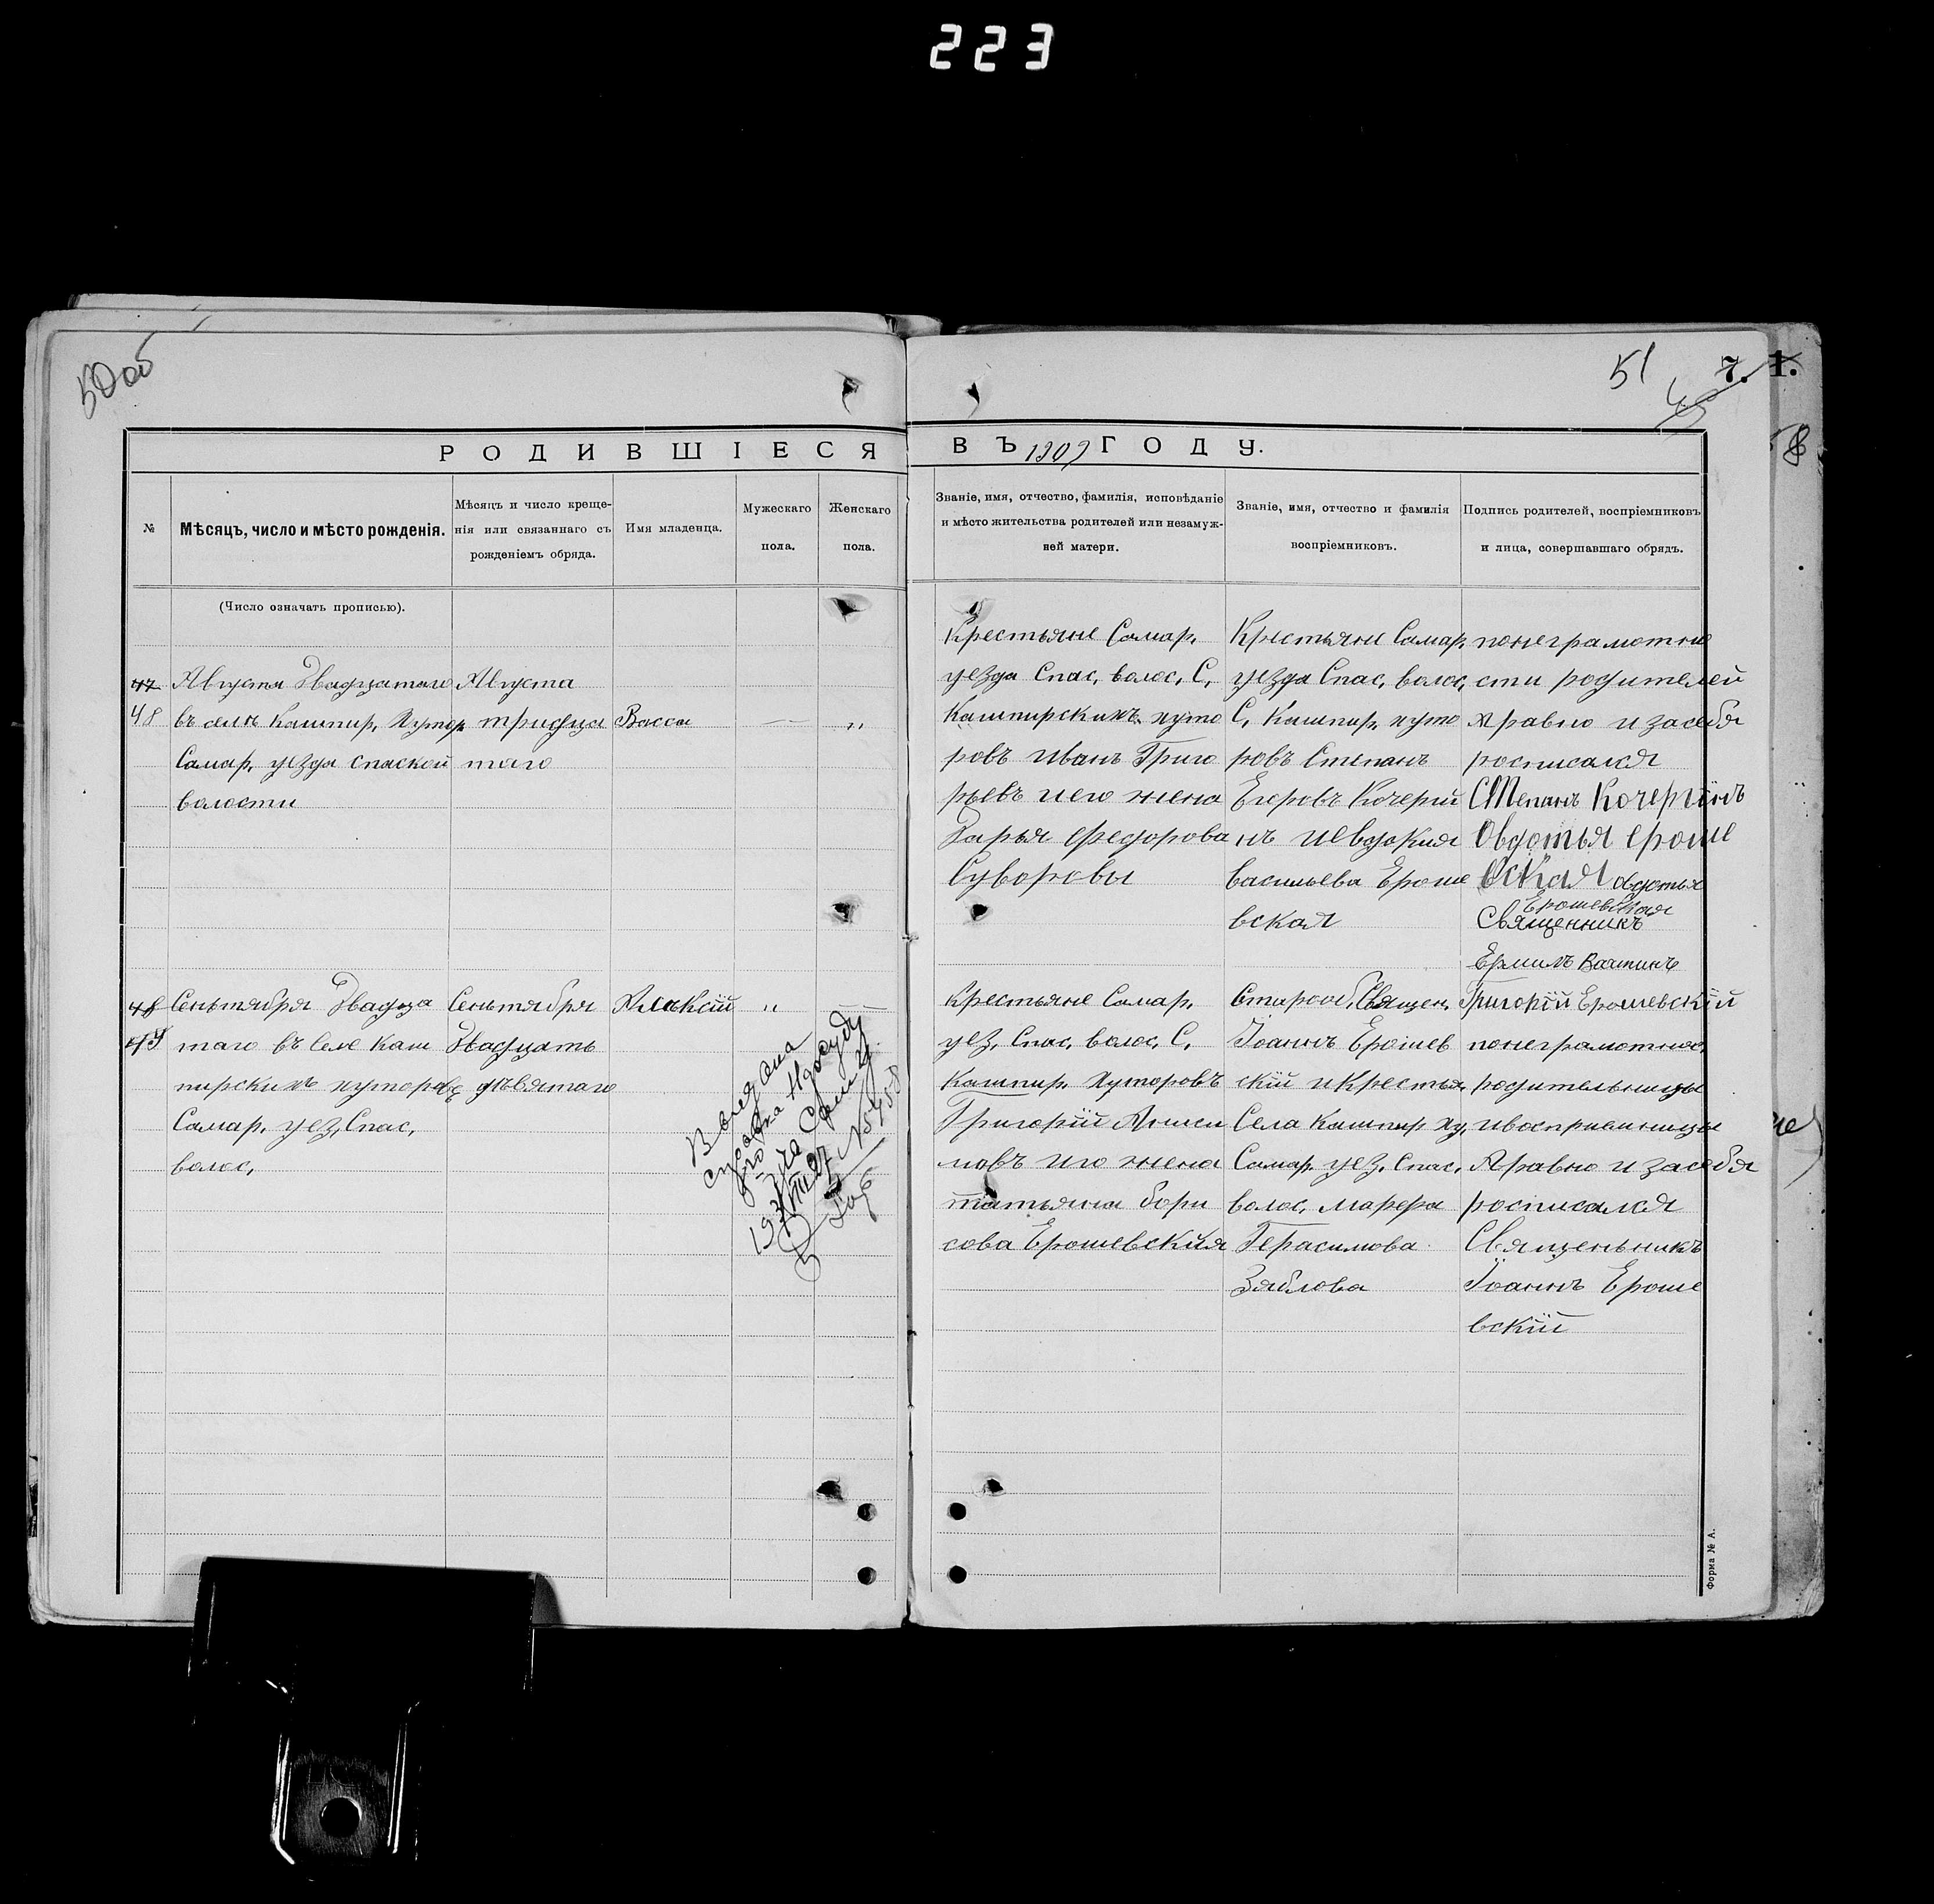 223
50 об
51
7.
1.
8
РОДИВШІЕСЯ ВЪ 1909 ГОДУ.
№
Мѣсяцъ, число и мѣсто рожденія.
Мѣсяцъ и число креще-
нія или связаннаго съ
рожденіемъ обряда.
Имя младенца.
Мужескаго
пола.
Женскаго
пола.
Званіе, имя, отчество, фамилія, исповѣданіе
и мѣсто жительства родителей или незамуж-
ней матери.
Званіе, имя, отчество и фамилія
воспріемниковъ.
Подпись родителей, воспріемниковъ
и лица, совершавшаго обрядъ.
(Число означать прописью).
47
48
Августа Двадцатаго
въ селѣ Кашпир, Хутор,
Самар, уезда спаской
волости
Августа
тридца
таго
Васса
—
„
Крестьяне Самар,
уезда Спас, волос, С,
Кашпирскихъ хуто
ровъ Иванъ Григо
рьевъ иего жена
Дарья Федорова
Суворовы
Крестьяне Самар,
уезда Спас, волос,
С, Кашпир, хуто
ровъ Степанъ
Егоровъ Кочерги
нъ иевдокия
васильева Ероше
вская
понеграмотно
сти родителей
Аравно и засебя
росписался
Степанъ Кочергінъ
Овдотья ероше
вская Овдотья
Ерошевская
Священникъ
Ермилъ Вантинъ
48
49
Сеньтября Двадца
таго въ Селе Каш
пирскихъ хуторовъ
Самар, уез, Спас,
волос,
Сеньтября
Двадцать
дѣвятаго
Алѣксій
„
—
Выдана
справка
1937
Крестьяне Самар,
уез, Спас, волос, С,
Кашпир, Хуторовъ
Григорій Аниси
мовъ иго жена
татьяна бори
сова Ерошевския
Старооб, Священ,
Іоаннъ Ерошев
скій и Крестья,
Села Кашпир ху,
Самар, уез, Спас,
волос, марфа
Герасимова
Зяблова
Григорій Ерошевскій
понеграмотнос,
родительницы
ивосприемницы
Аравно и засебя
росписался
Священьникъ
Іоаннъ Ероше
вскій
Форма № А.